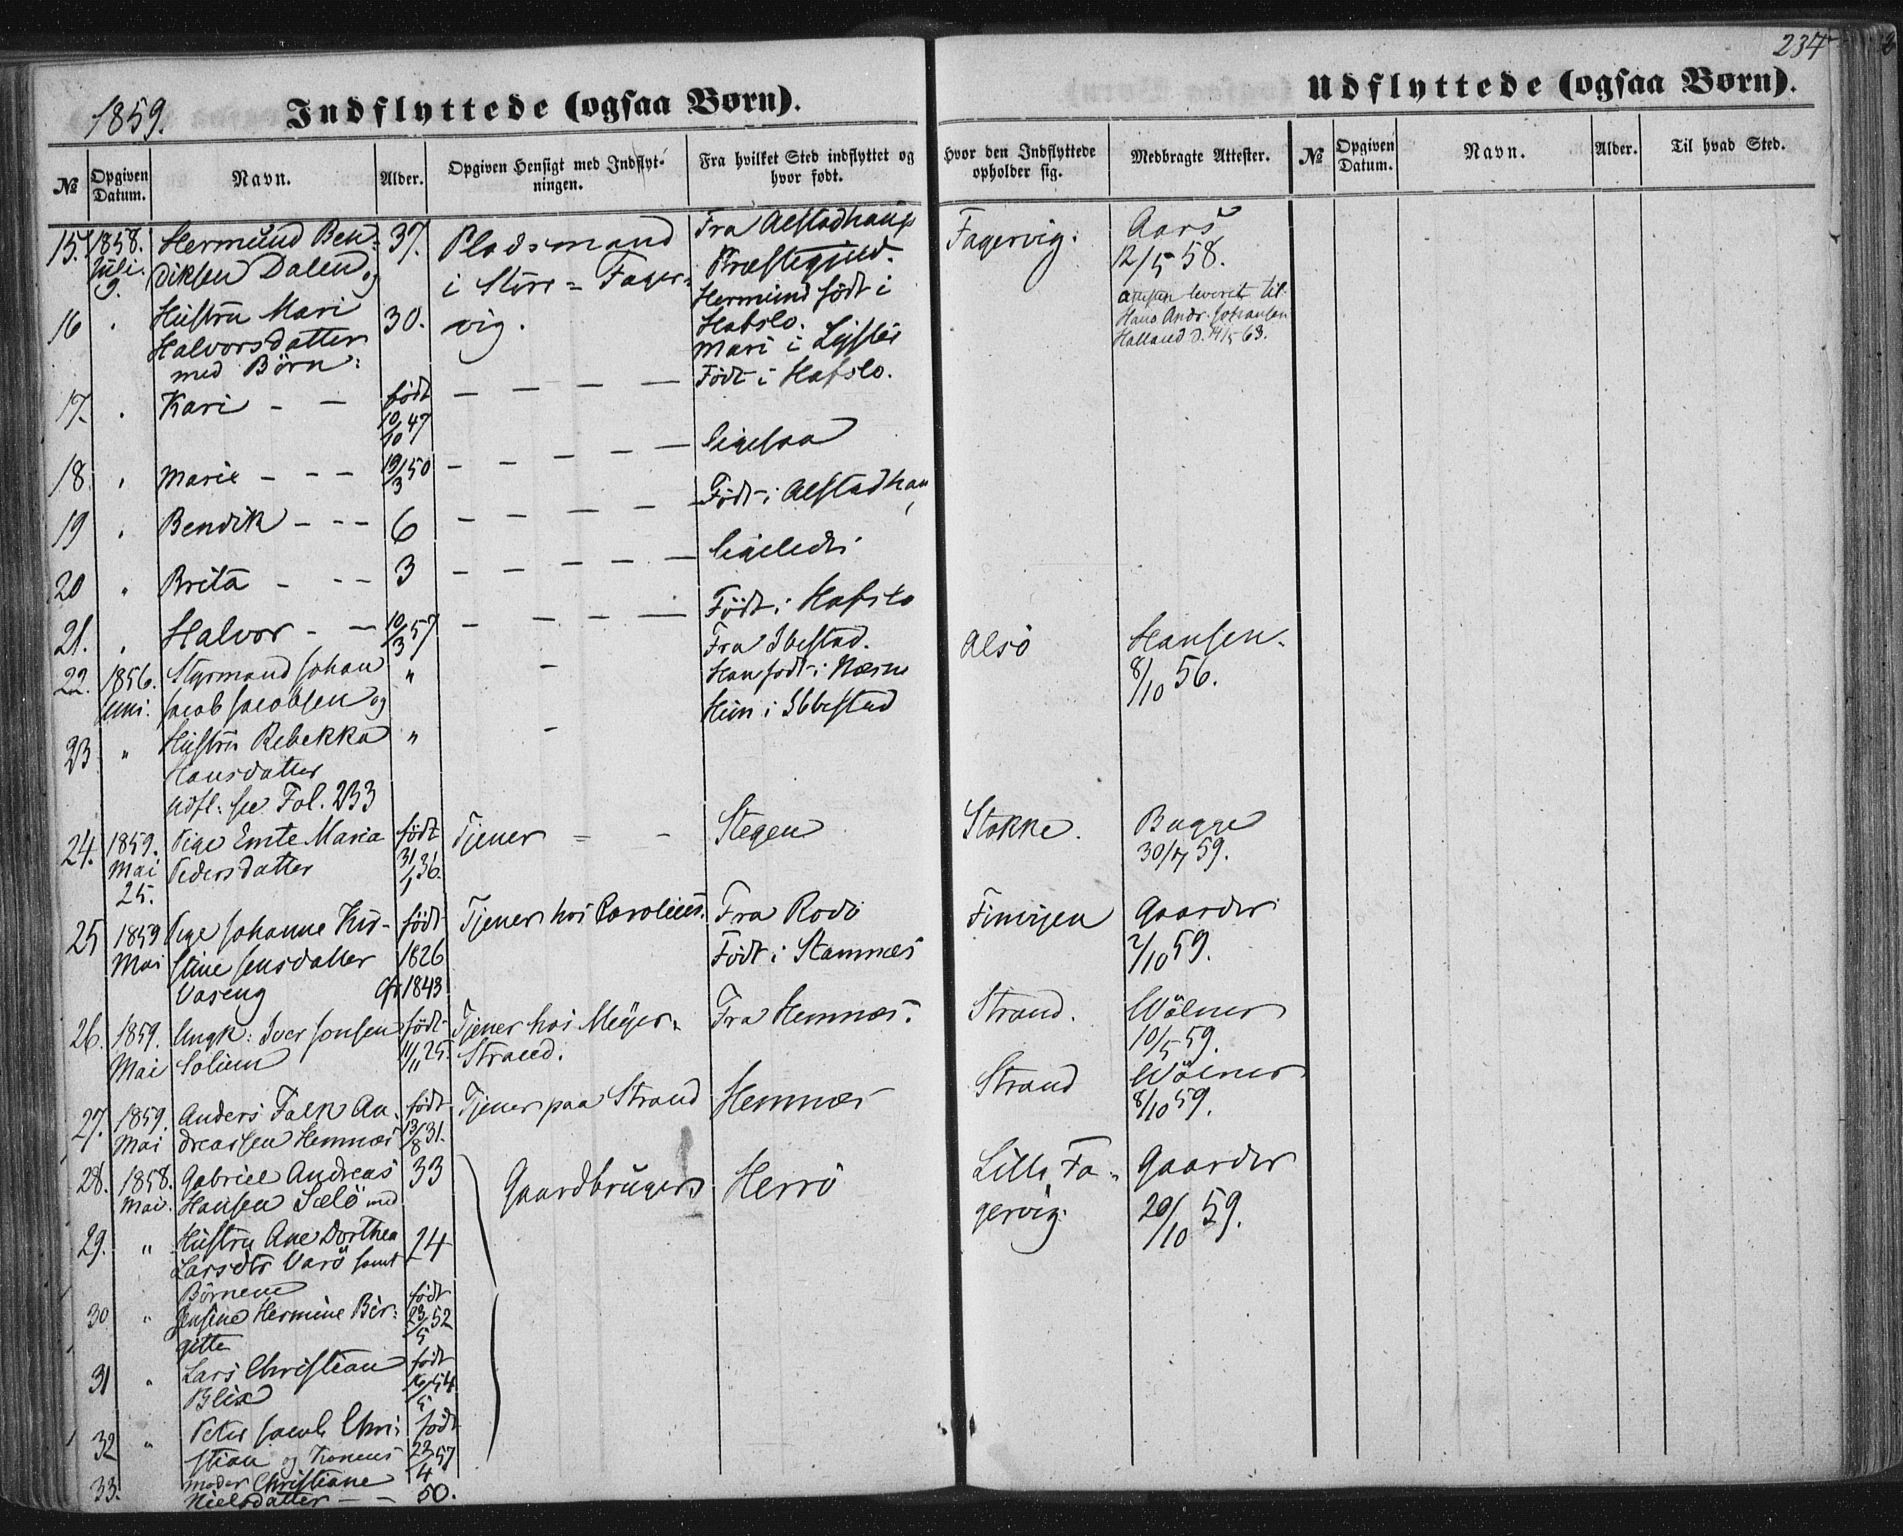 234
1859.
Indflyttede (ogsaa Børn).
Udflyttede (ogsaa Børn).
№ Opgiven Datum. Navn. Alder. Opgiven Hensigt med Indflytningen. Fra hvilket Sted indflyttet og hvor født. Hvor den Indflyttede opholder sig. Medbragte Attester. № Opgiven Datum. Navn. Alder. Til hvad Sted.
15. 1858. Hermund Ben- 37. Pladsmand Fra Alstadhaug Fagervig. Aars
Juli diksen Dalen og i Store-Fager- Præstegjeld. 12/5 58.
9. Hermund født i
16 " Hustru Mari 30. vig. Hafslo. leveret til
Halvorsdatter Mari i Lyster Hans Andr. Johansen
med Børn: Halland d. 14/5 63.
17. " Kari - - født - - - - Født i Hafslo.
10/10 47
18. " Marie - - - 19/3 50 - - - - - ligesaa
19 " Bendik - - - 6 - - - - - Født i Alstadhau
20 " Brita - - - 3 - - - - - ligeledes
21. " Halvor - - 10/3 57 - - - - Født i Hafslo
22. 1856. Styrmand Johan " - Fra Ibestad. Alsö Hansen.
Juni. Jacob Jacobsen og Han født i Næsne 8/10 56.
23 " Hustru Rebekka " - Hun i Ibbestad
Hansdatter
udfl: see Fol. 233
24. 1859. Pige Emte Maria født Tjener - - Stegen Stokke. Bugge
Mai Pedersdatter 31/1 36. 30/7 59.
25.
25 1859 Pige Johanne Kir- født Tjener hos Parolius. Fra Rodö Finvigen Gaarder
Mai stine Jensdatter 1826 Født i Stamnes 2/10 59.
Vaseng Cf. 1843
26. 1859. Ungk: Iver Jonsen født Tjener hos Meÿer- Fra Hemnæs. Strand. Wölner
Mai Solium 11/11 25. Strand. 10/5 59.
27. 1859. Anders Falk An- født Tjener paa Strand Hemnæs Strand Wölner
Mai dreassen Hemnæs 13/8 31. 8/10 59.
28. 1858. Gabriel Andreas 33 Gaardbrugers Herrö Lille Fa- Gaarder
Mai. Hansen Sælö med gervig. 20/10 59.
29. " Hustru Ane Dorthea 24
Larsdtr Varö samt
Børnene
30 " Jensine Hermine Bir- født 23/5 52
gitte
31 " Lars Christian født
Blix 16/5 54
32 " Peter Jacob Chri- født
stian og Konens 22/4 57
33. moder Christiane
Nielsdatter - - 50.